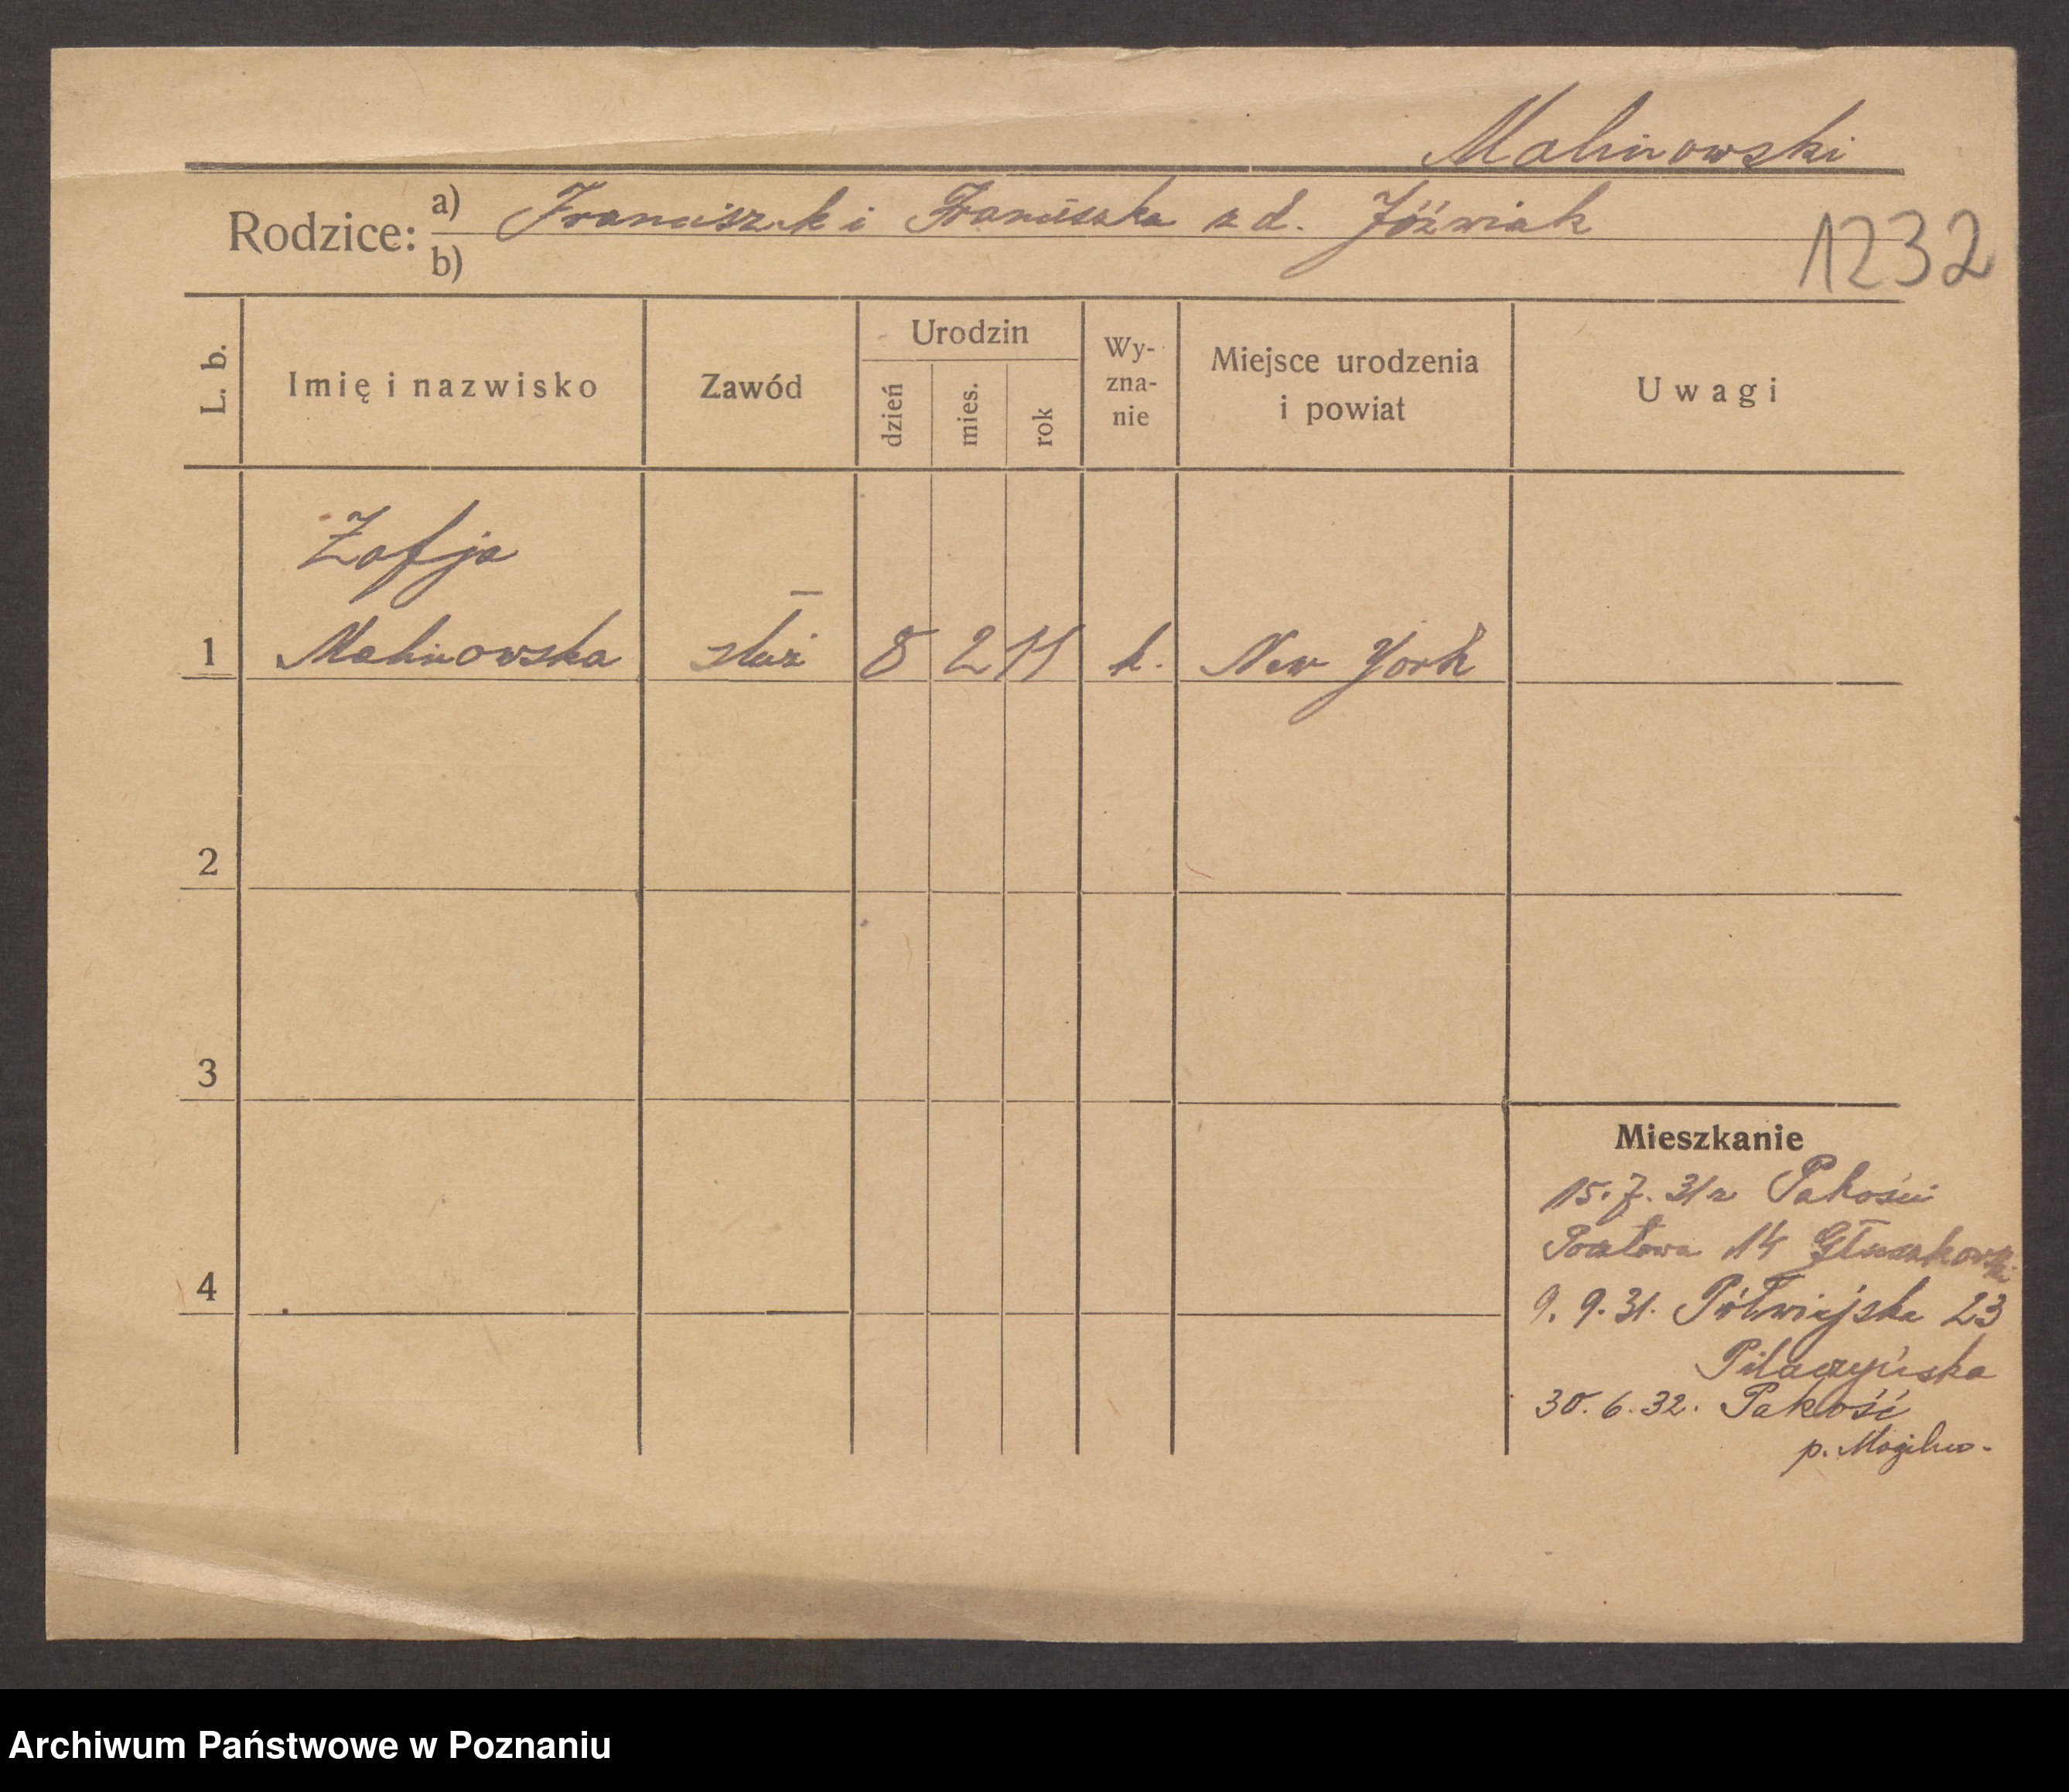 Malinowski
Rodzice: a) Franciszek i Franciszka z d. Jóźwiak
b)
1232
L. b.
Imię i nazwisko
Zawód
Urodzin
dzień
mies.
rok
Wy-
zna-
nie
Miejsce urodzenia
i powiat
Uwagi
Zofja
1 Malinowska służ 8 2 11 k. New York
2
3
4
Mieszkanie
15.7.31 r Pakości
Pocztowa 14
9.9.31. Półwiejska 23
Pilaczyńska
30.6.32. Pakość
p. Mogilno.
Archiwum Państwowe w Poznaniu